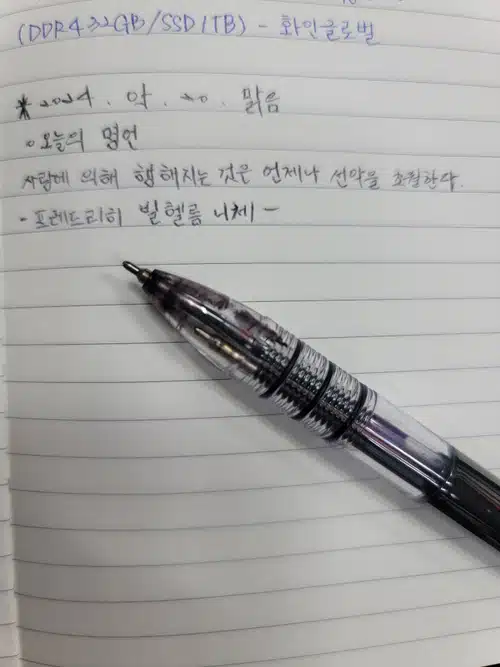 (DDR4 32GB/SSD 1TB) - 화인글로벌
* 2024. 약. 20. 맑음
◦ 오늘의 명언
사랑에 의해 행해지는 것은 언제나 선악을 초월한다.
- 프레드리히 빌헬름 니체 -